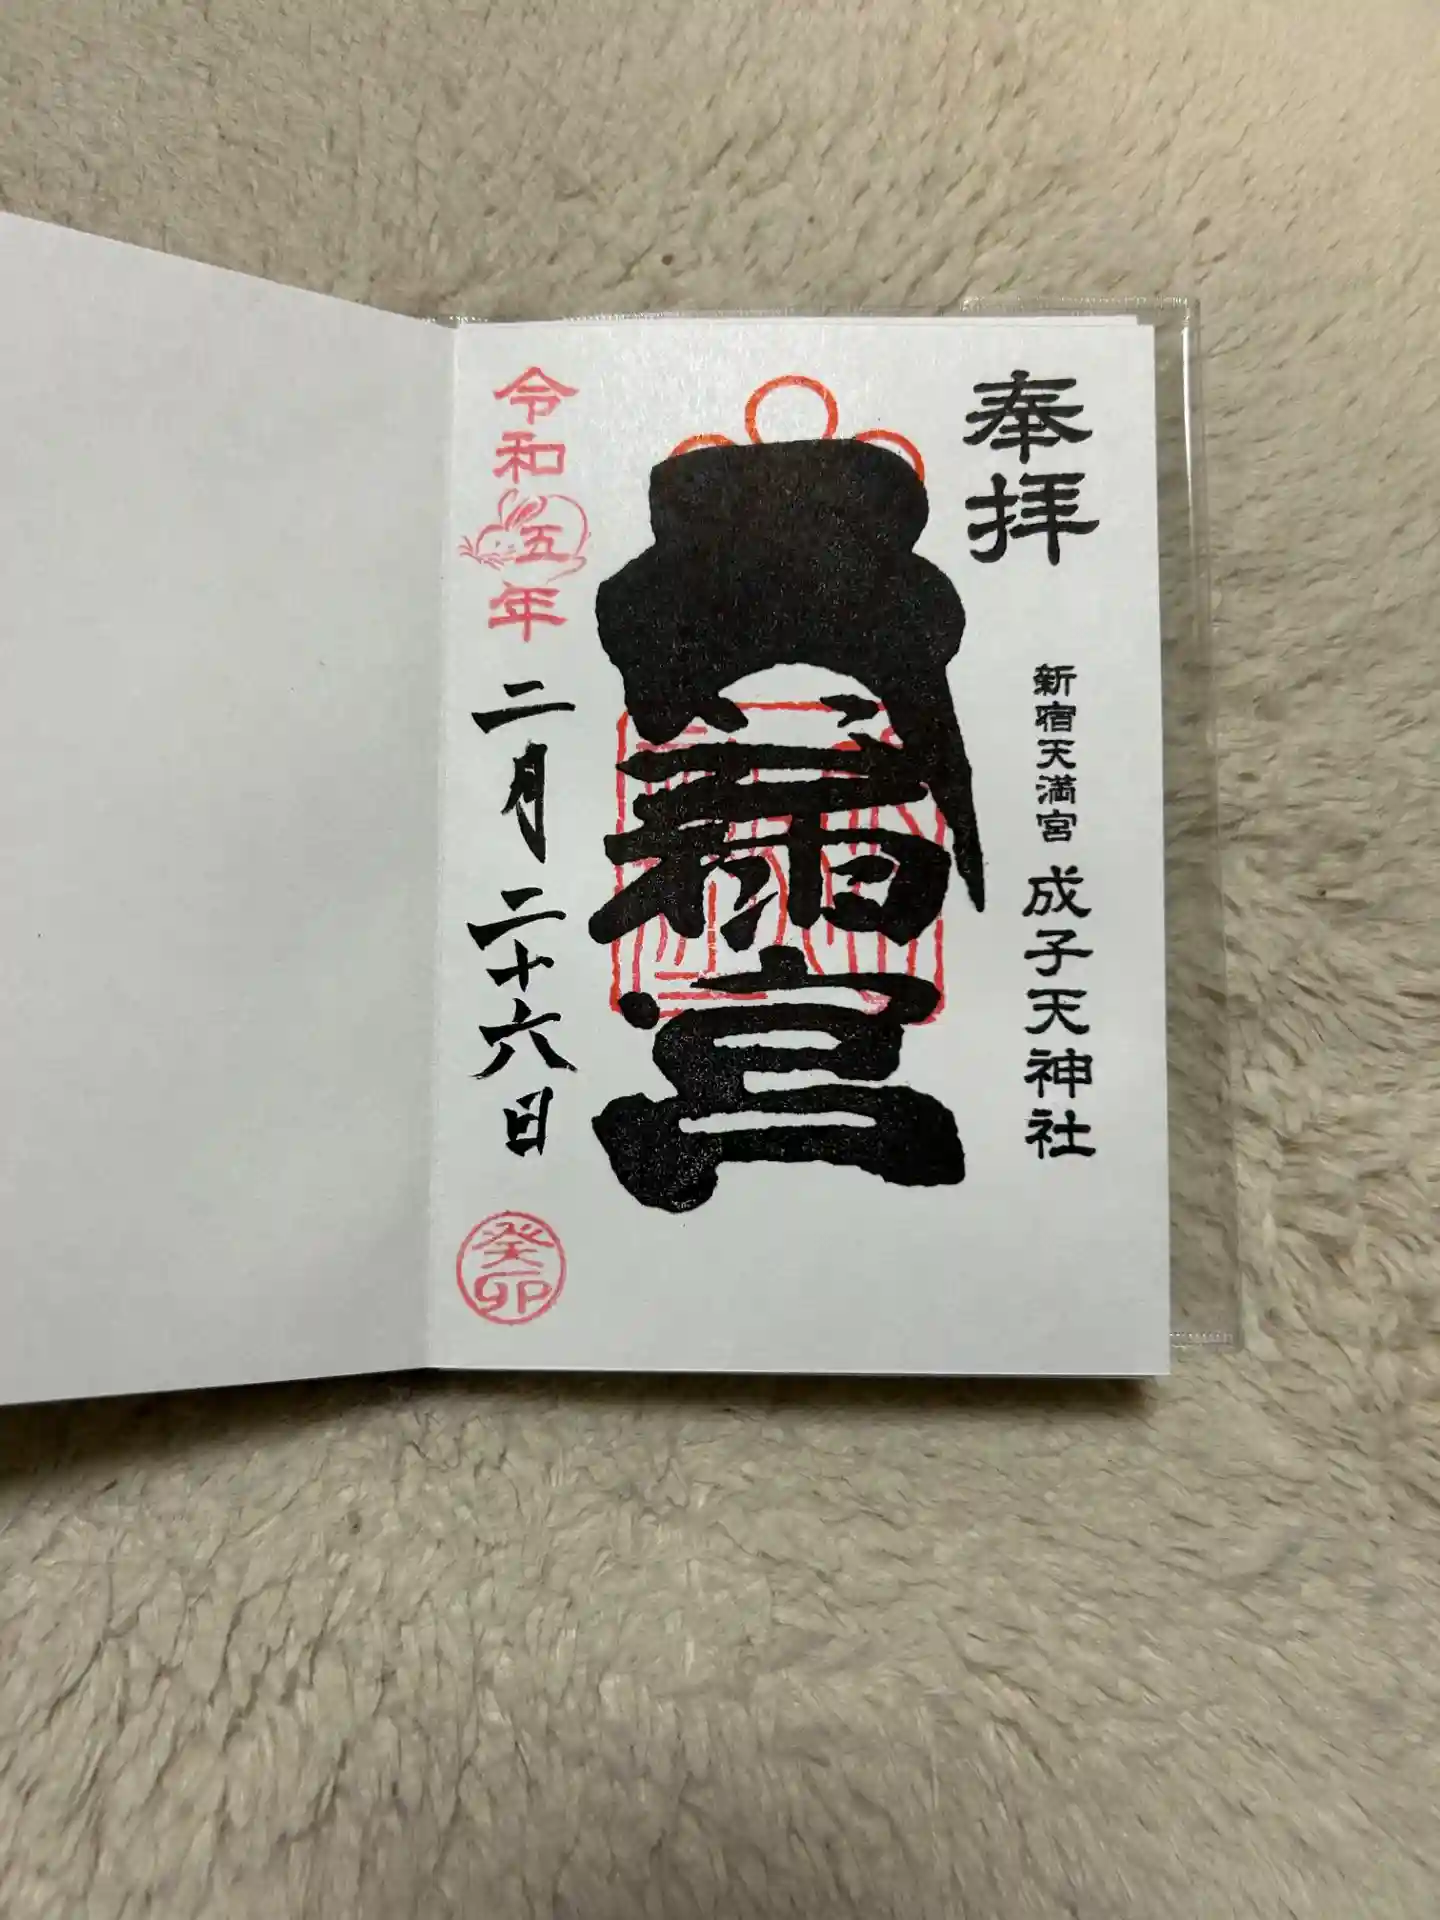 奉拝
新宿天満宮 成子天神社
令和五年
二月二十六日
癸卯